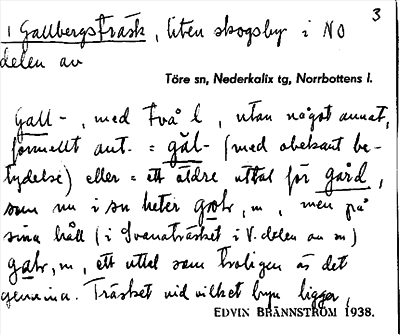 3
1 Gallbergsträsk, liten skogsby i NO
delen av
Töre sn, Nederkalix tg, Norrbottens l.
Gall-, med två l, utan något annat,
formellt ant. = găl- (med obekant be-
tydelse) eller = ett äldre uttal för gård,
som nu i sn heter, m, men på
sina håll (i Svanaträsket i V. delen av sn)
m, ett uttal som troligen är det
genuina. Träsket vid vilket byn ligger,
EDVIN BRÄNNSTRÖM 1938.